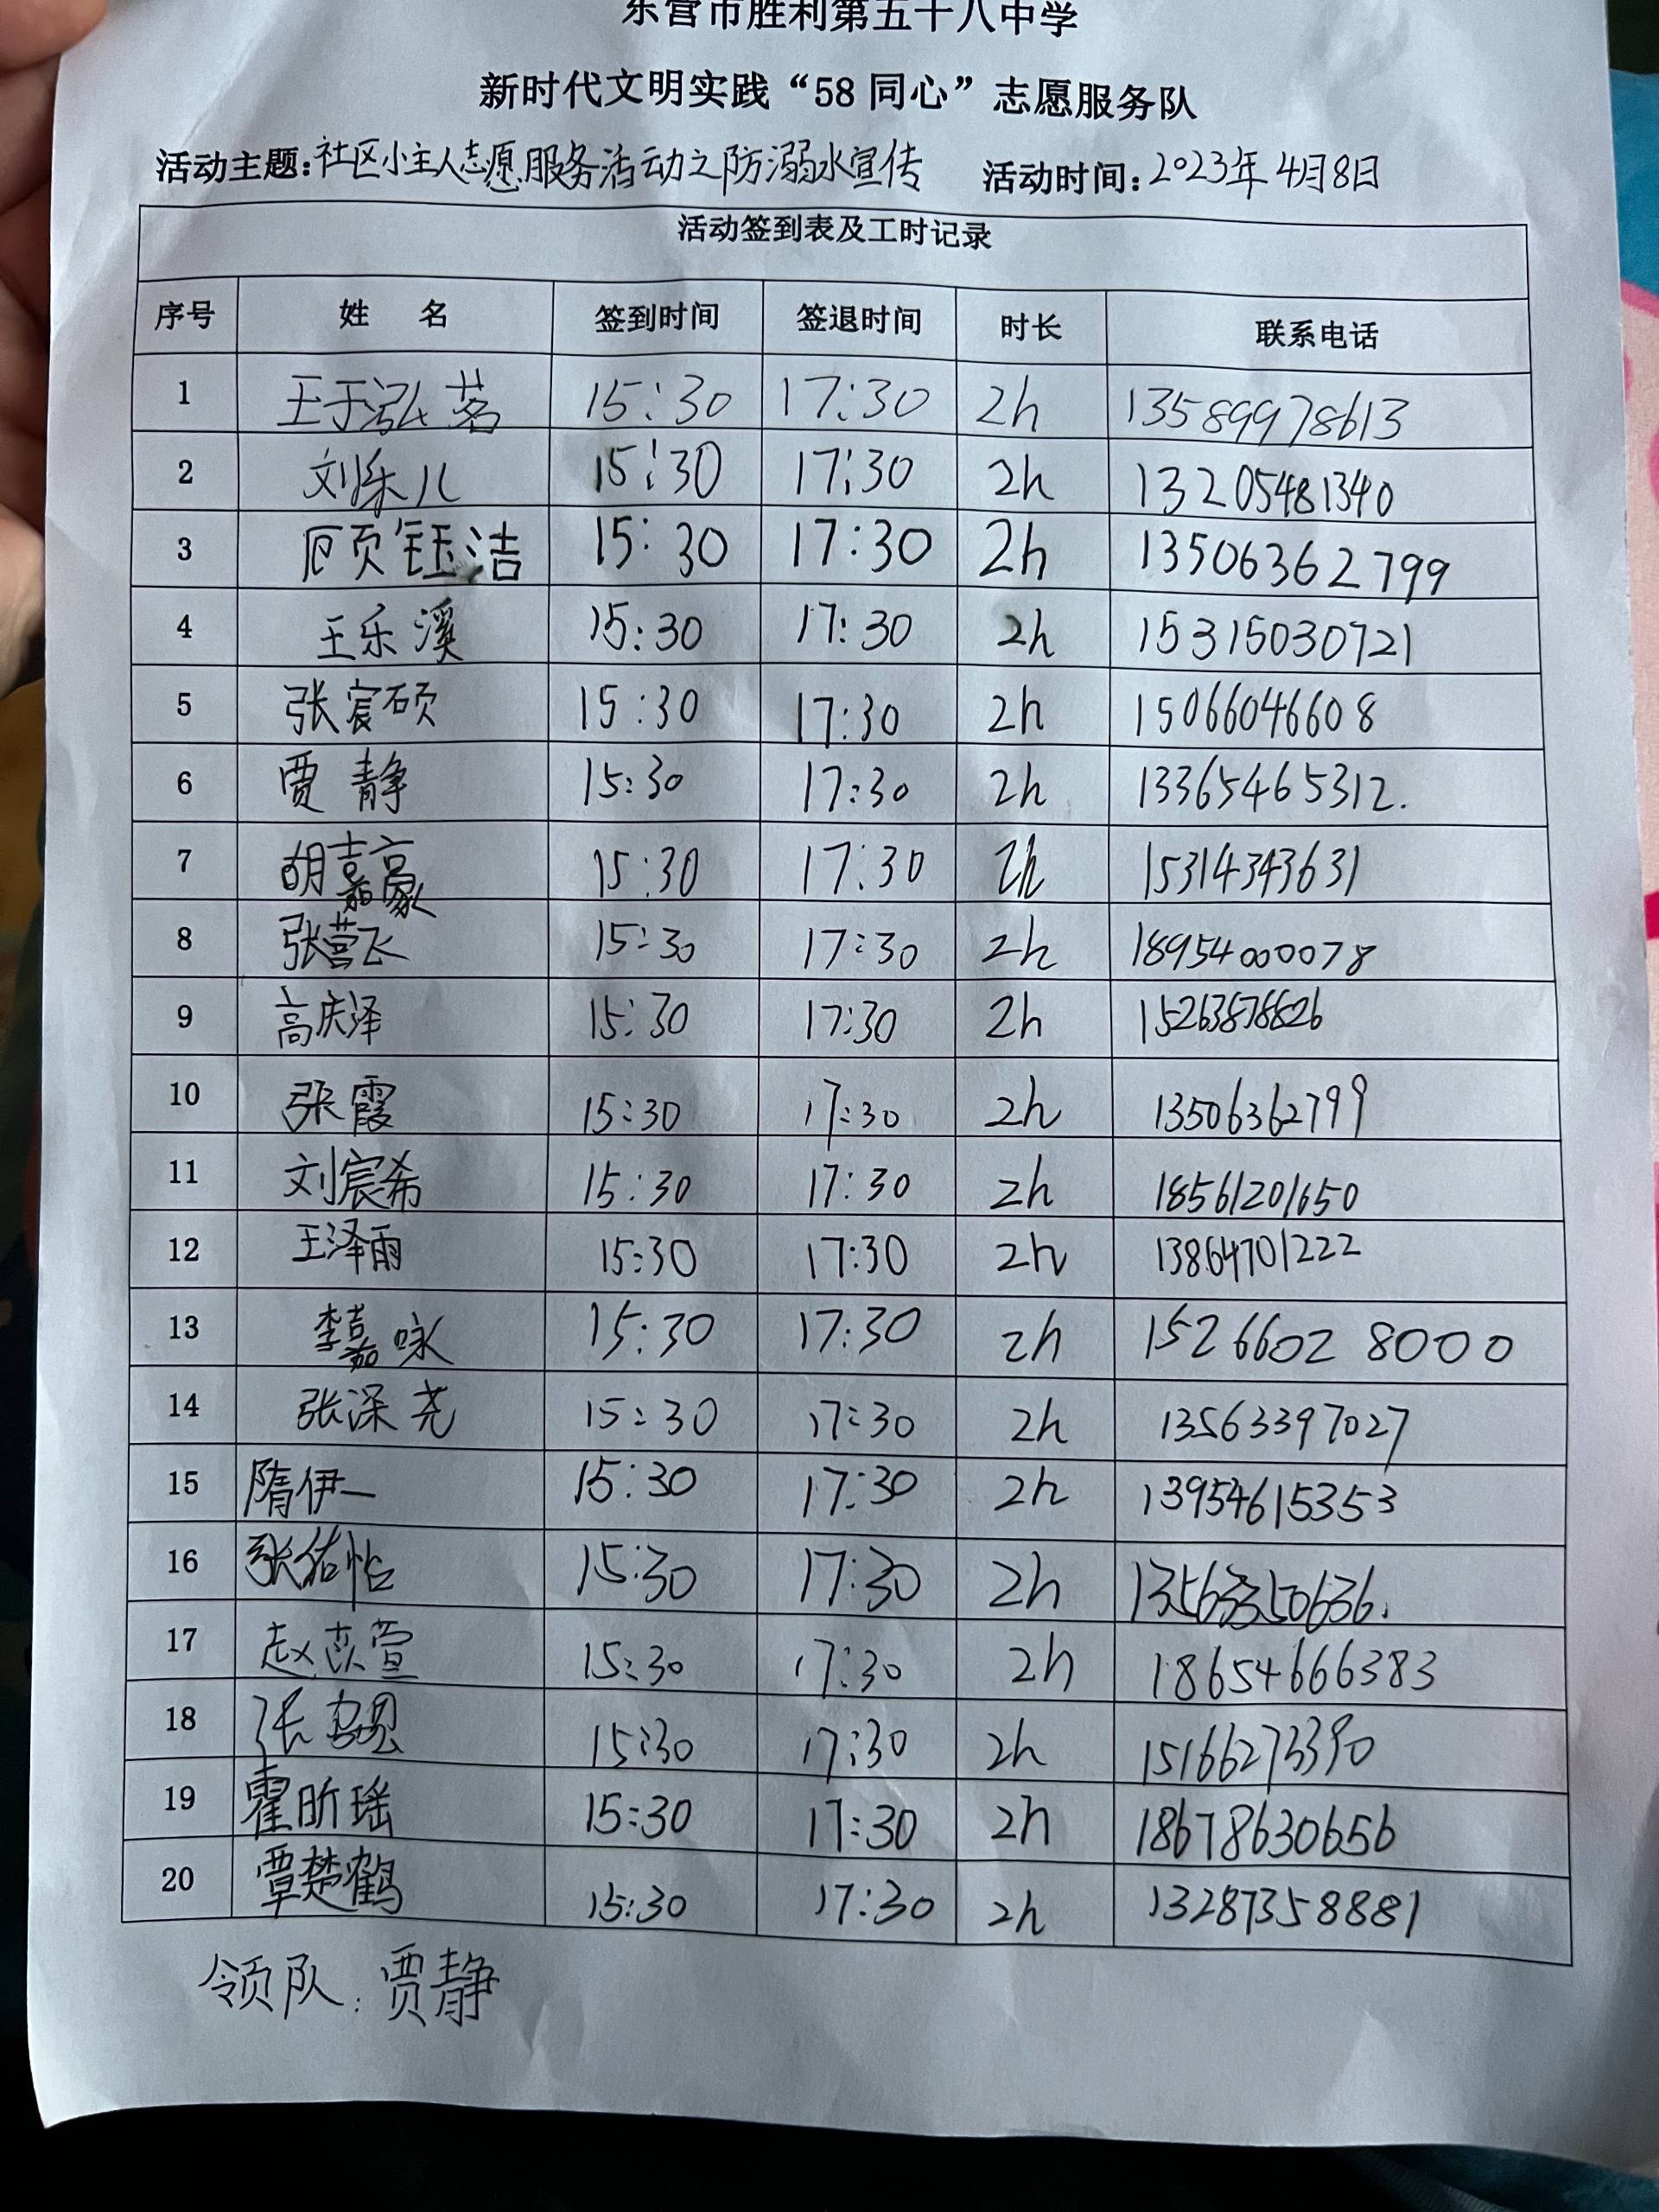 东营市胜利第五十八中学
新时代文明实践“58 同心”志愿服务队
活动主题:社区小主人志愿服务活动之防溺水宣传 活动时间:2023年4月8日
活动签到表及工时记录
序号 姓 名 签到时间 签退时间 时长 联系电话
1 王于泓茗 15:30 17:30 2h 13589978613
2 刘乐儿 15:30 17:30 2h 13205481340
3 顾钰洁 15:30 17:30 2h 13506362799
4 王乐溪 15:30 17:30 2h 15315030721
5 张宸硕 15:30 17:30 2h 15066046608
6 贾静 15:30 17:30 2h 13365465312.
7 胡嘉豪 15:30 17:30 2h 15314343631
8 张营飞 15:30 17:30 2h 18954000078
9 高庆泽 15:30 17:30 2h
10 张霞 15:30 17:30 2h 13506362799
11 刘宸希 15:30 17:30 2h 18561201650
12 王泽雨 15:30 17:30 2h 13864701222
13 李嘉咏 15:30 17:30 2h 15266028000
14 张深尧 15:30 17:30 2h 13563397027
15 隋伊一 15:30 17:30 2h 13954615353
16 张佑怡 15:30 17:30 2h
17 赵 萱 15:30 17:30 2h 18654666383
18 张 15:30 17:30 2h 15166273390
19 霍昕瑶 15:30 17:30 2h 18678630656
20 覃楚鹤 15:30 17:30 2h 13287358881
领队:贾静